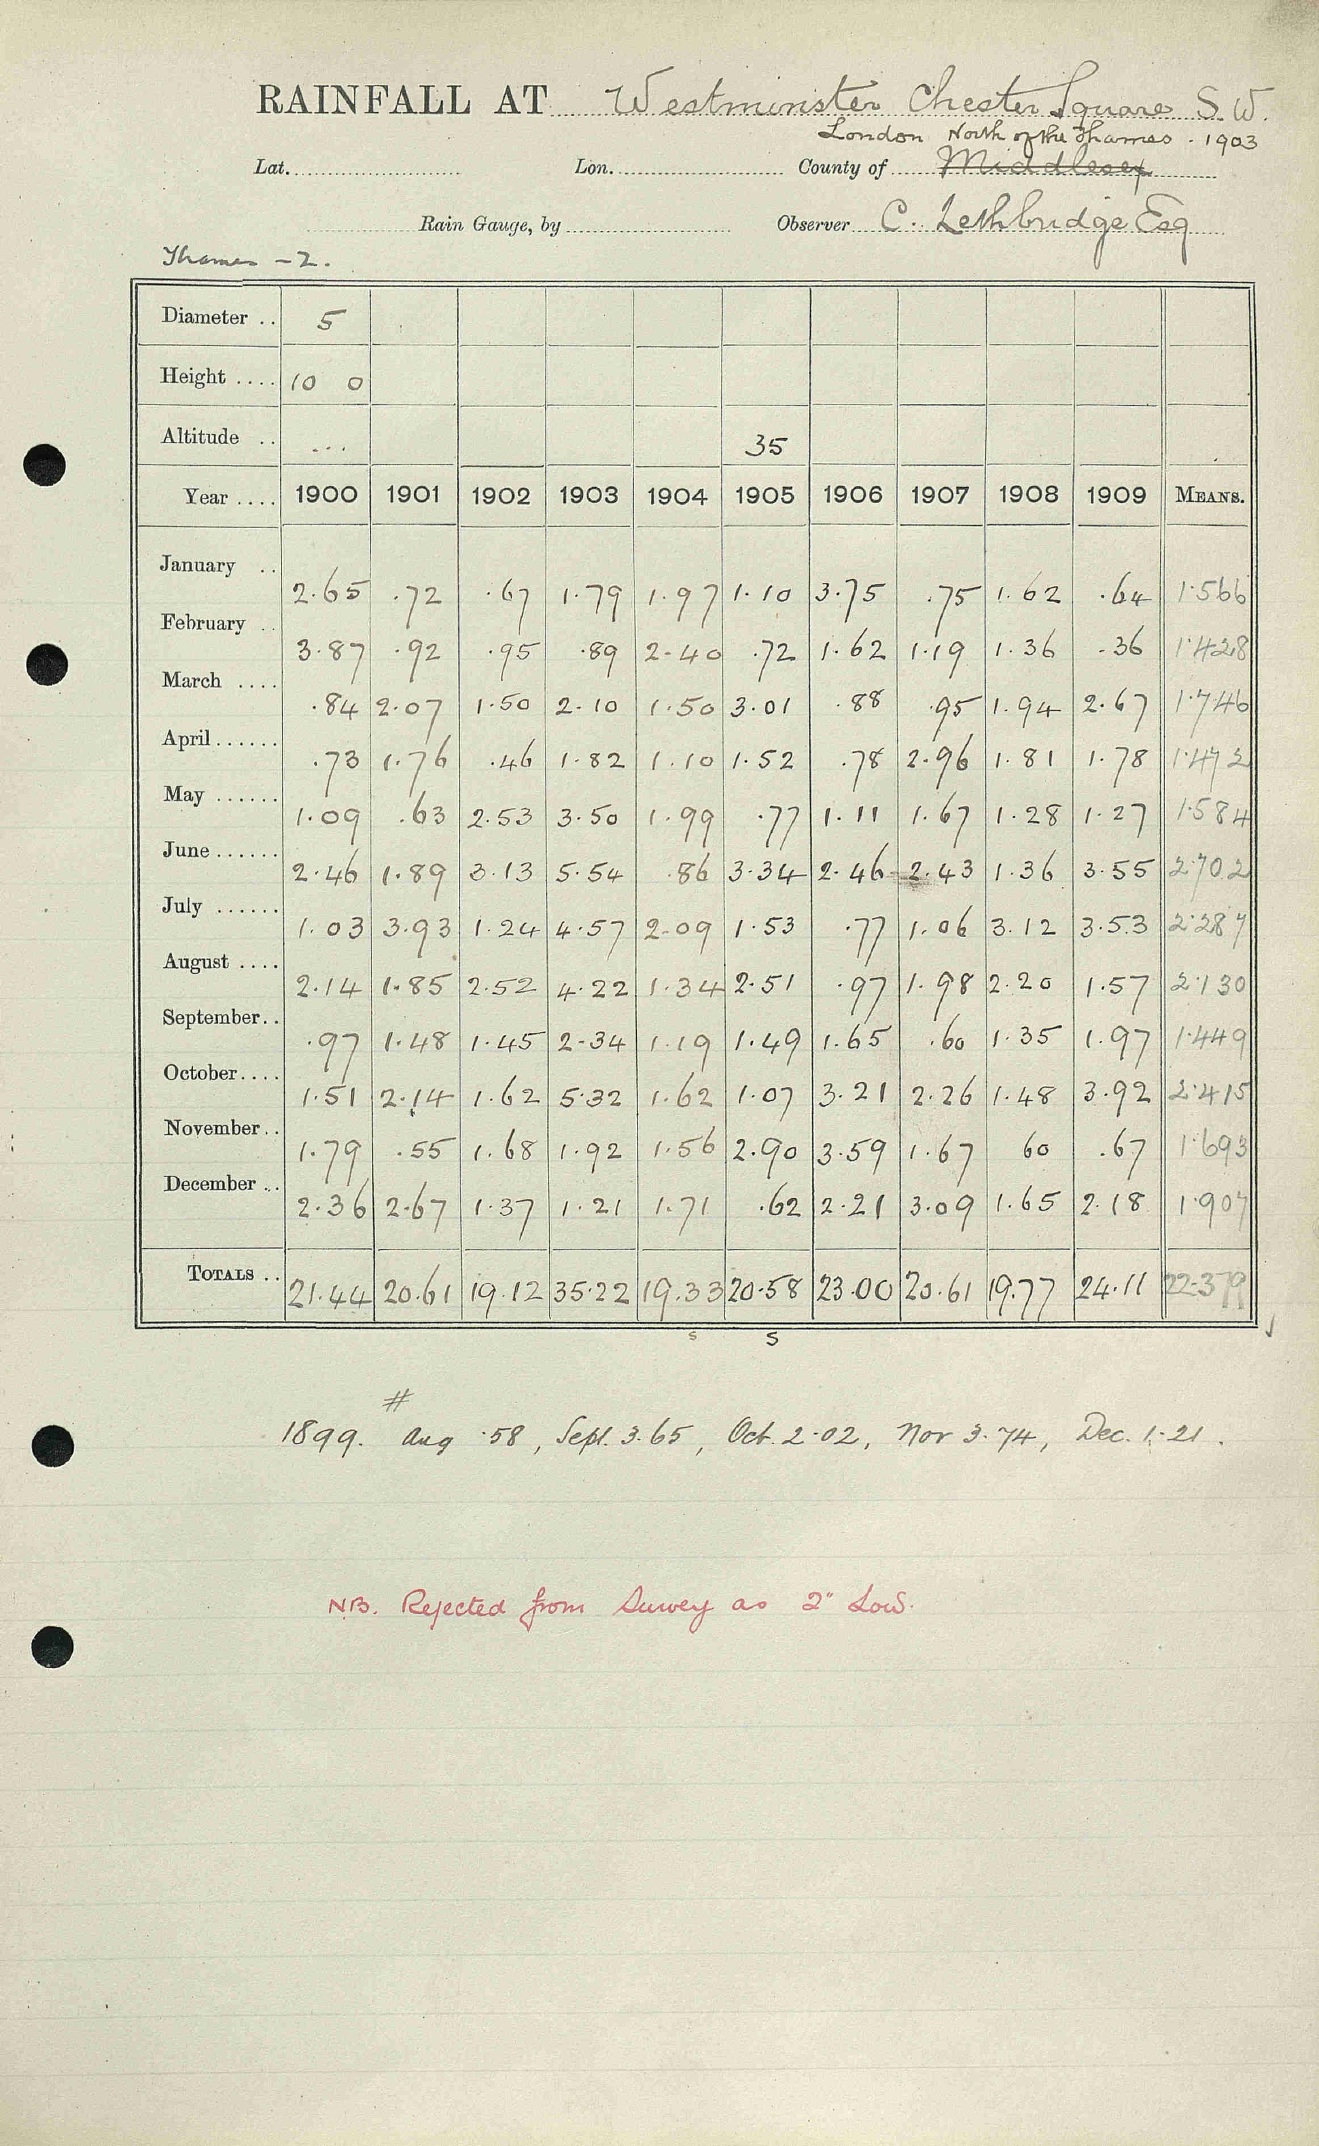 RAINFALL AT Westminster Chester Square S.W.
London North of the Thames . 1903
Lat. Lon. County of Middlesex
Rain Gauge, by Observer C. Lethbridge Esq
Thames - 2.
Diameter .. 5
Height .... 10 0
Altitude .. ... 35
Year .... 1900 1901 1902 1903 1904 1905 1906 1907 1908 1909 MEANS.
January .. 2.65 .72 .67 1.79 1.97 1.10 3.75 .75 1.62 .64 1.566
February .. 3.87 .92 .95 .89 2.40 .72 1.62 1.19 1.36 .36 1.428
March .... .84 2.07 1.50 2.10 1.50 3.01 .88 .95 1.94 2.67 1.746
April...... .73 1.76 .46 1.82 1.10 1.52 .78 2.96 1.81 1.78 1.472
May ...... 1.09 .63 2.53 3.50 1.99 .77 1.11 1.67 1.28 1.27 1.584
June...... 2.46 1.89 3.13 5.54 .86 3.34 2.46 2.43 1.36 3.55 2.702
July ...... 1.03 3.93 1.24 4.57 2.09 1.53 .77 1.06 3.12 3.53 2.287
August .... 2.14 1.85 2.52 4.22 1.34 2.51 .97 1.98 2.20 1.57 2.130
September.. .97 1.48 1.45 2.34 1.19 1.49 1.65 .60 1.35 1.97 1.449
October.... 1.51 2.14 1.62 5.32 1.62 1.07 3.21 2.26 1.48 3.92 2.415
November.. 1.79 .55 1.68 1.92 1.56 2.90 3.59 1.67 60 .67 1.693
December .. 2.36 2.67 1.37 1.21 1.71 .62 2.21 3.09 1.65 2.18 1.907
TOTALS .. 21.44 20.61 19.12 35.22 19.33 20.58 23.00 20.61 19.77 24.11 22.379
S S
#
1899. Aug .58, Sept. 3.65, Oct. 2.02, Nov 3.74, Dec. 1.21.
N.B. Rejected from Survey as 2" Low.